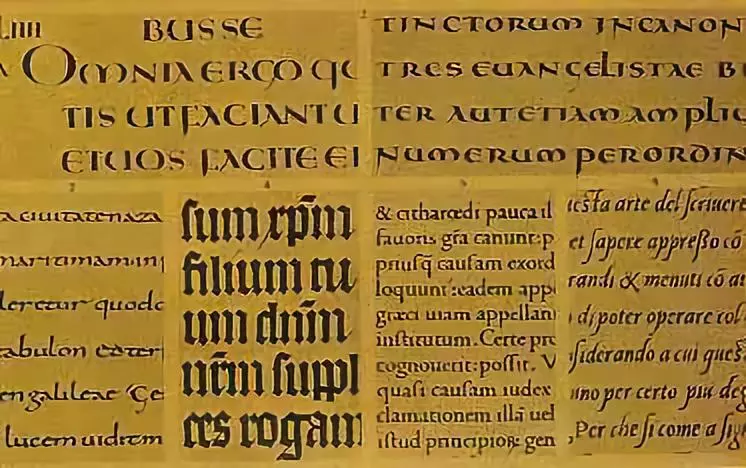 BUSSE
OMNIA ERGO QU
TIS UT FACIANT U
ET UOS FACITE EI
TINCTORUM IN CANON
TRES EUANGELISTAE
TER AUT ETIAM AMPLIU
NUMERUM PER ORDIN
a ciuitate naza
maritimam in
leretur quod
abulon et ter
en galileae Ge
lucem uidit m
sum xp̄m
filium tu
um dn̄m
nr̄m suppl
ces rogam
& citharœdi pauca il
fauoris gr̄a canunt: p
priusq̃ causam exord
loquunt: eadem app
græci uiam appellan
institutum. Certe pro
cognouerit: possit. V
quasi causam iudex
clamationem illā uel
istud principioꝝ gen
uesta arte del scriuere
et sapere appresso cō
randi & menuti cō at
di poter operare col
siderando a cui quest
uno per certo piu deg
,Per che si come a sig